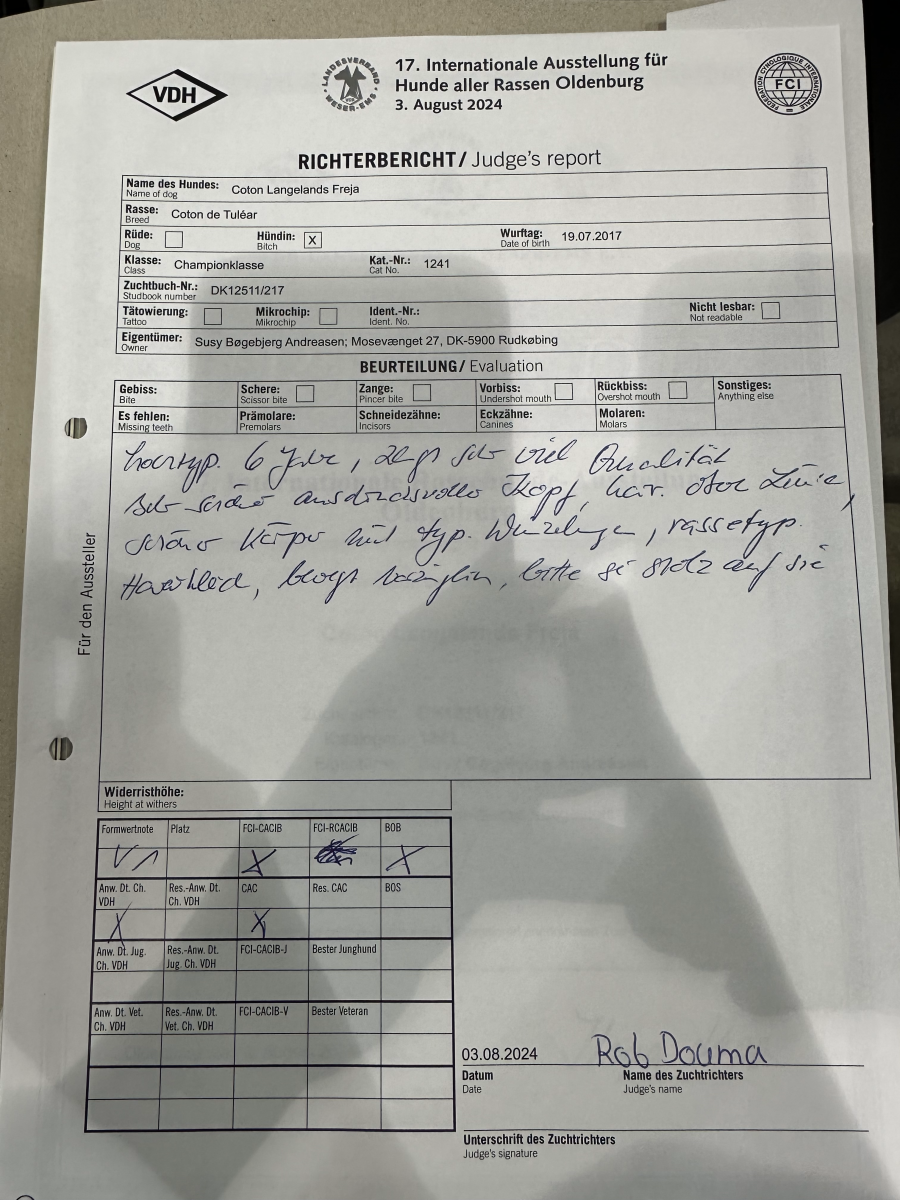 VDH
LANDESVERBAND WESER-EMS
17. Internationale Ausstellung für
Hunde aller Rassen Oldenburg
3. August 2024
FEDERATION CYNOLOGIQUE INTERNATIONALE
FCI
RICHTERBERICHT/ Judge's report
Name des Hundes: Coton Langelands Freja
Name of dog
Rasse: Coton de Tuléar
Breed
Rüde: Hündin: X Wurftag: 19.07.2017
Dog Bitch Date of birth
Klasse: Championklasse Kat.-Nr.: 1241
Class Cat No.
Zuchtbuch-Nr.: DK12511/217
Studbook number
Tätowierung: Mikrochip: Ident.-Nr.: Nicht lesbar:
Tattoo Mikrochip Ident. No. Not readable
Eigentümer: Susy Bøgebjerg Andreasen; Mosevænget 27, DK-5900 Rudkøbing
Owner
BEURTEILUNG/ Evaluation
Gebiss: Schere: Zange: Vorbiss: Rückbiss: Sonstiges:
Bite Scissor bite Pincer bite Undershot mouth Overshot mouth Anything else
Es fehlen: Prämolare: Schneidezähne: Eckzähne: Molaren:
Missing teeth Premolars Incisors Canines Molars
Für den Aussteller
hochtyp. 6 Jahre, zeigt sehr viel Qualität
sehr schöner ausdrucksvoller Kopf, kor. obere Linie,
schöner Körper mit typ. Winkelungen, rassetyp.
Haarkleid, bewegt vorzüglich, bitte sei stolz auf sie
Widerristhöhe:
Height at withers
Formwertnote Platz FCI-CACIB FCI-RCACIB BOB
V1 X X
Anw. Dt. Ch. VDH Res.-Anw. Dt. Ch. VDH CAC Res. CAC BOS
X X
Anw. Dt. Jug. Ch. VDH Res.-Anw. Dt. Jug. Ch. VDH FCI-CACIB-J Bester Junghund
Anw. Dt. Vet. Ch. VDH Res.-Anw. Dt. Vet. Ch. VDH FCI-CACIB-V Bester Veteran
03.08.2024 Rob Douma
Datum Name des Zuchtrichters
Date Judge's name
Unterschrift des Zuchtrichters
Judge's signature